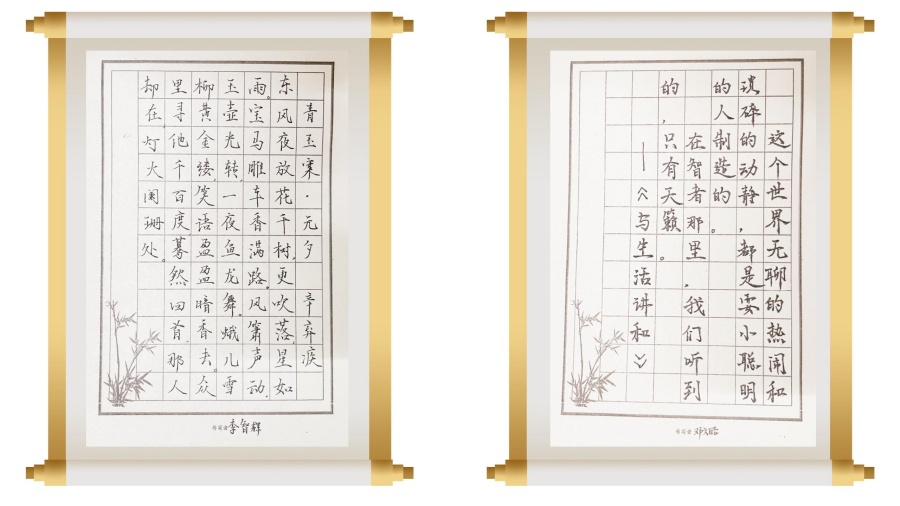 青玉案·元夕 辛弃疾
东风夜放花千树。更吹落。星如
雨。宝马雕车香满路。风箫声动,
玉壶光转,一夜鱼龙舞。蛾儿雪
柳黄金缕。笑语盈盈暗香去。众
里寻他千百度。蓦然回首,那人
却在,灯火阑珊处。
李智辉
这个世界无聊的热闹和
琐碎的动静,都是耍小聪明
的人制造的。
在智者那里,我们听到
的,只有天籁。
——《与生活讲和》